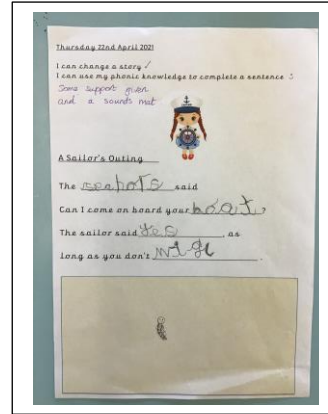 Thursday 22nd April 2021
I can change a story ✓
I can use my phonic knowledge to complete a sentence :
Some support given
and a sounds mat
A Sailor's Outing
The seapots said
Can I come on board your boat?
The sailor said yes, as
long as you don't